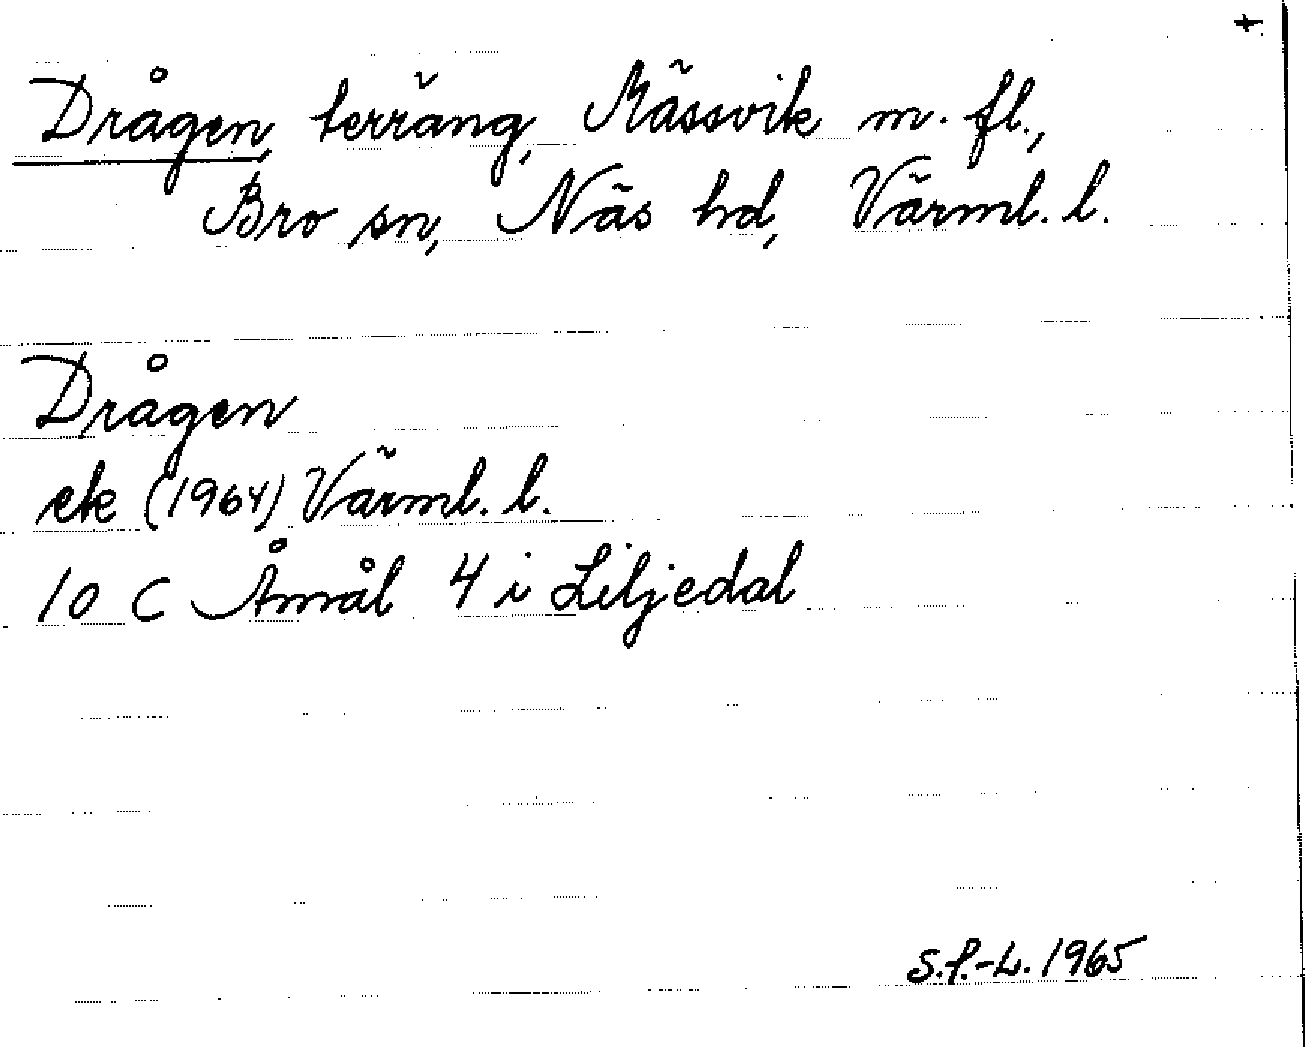 Drågen, terräng, Mässvik m. fl.,
Bro sn, Näs hd, Värml. l.
Drågen
ek (1964) Värml. l.
10 C Åmål 4 i Liljedal
S.P.-L. 1965